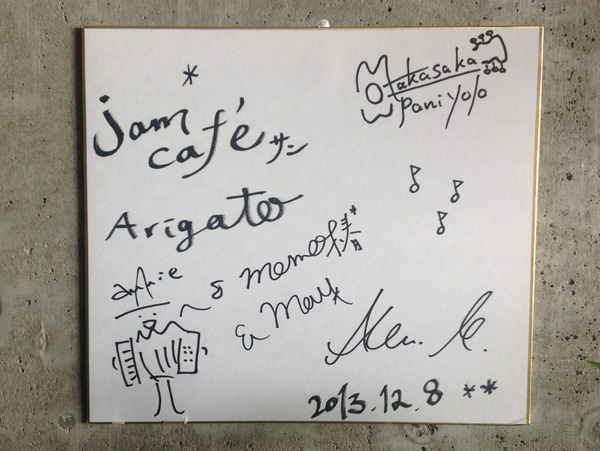 jam
café サン
Arigato
Makasaka
Paniyolo
annie
memo様
& Max
Ken. K.
2013.12.8